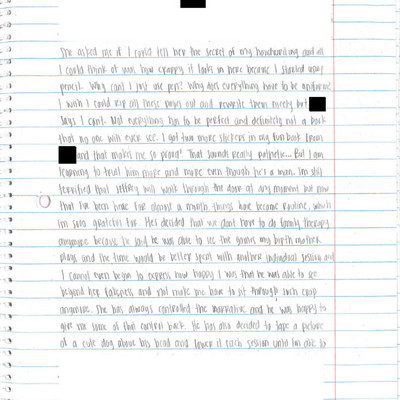 She asked me if I could tell her the secret of my handwriting and all
I could think of was how crappy it looks in here because I started using
pencil. Why can't I just use pen? Why does everything have to be uniform?
I wish I could rip all these pages out and rewrite them nicely but
says I can't. Not everything has to be perfect and definitely not a book
that no one will ever see. I got two more stickers in my fun book from
and that makes me so proud! That sounds really pathetic... But I am
learning to trust him more and more even though he's a man. I'm still
terrified that Jeffrey will walk through the door at any moment but now
that I've been here for almost a month things have become routine, which
I'm sooo grateful for. He's decided that we don't have to do family therapy
anymore because he said he was able to see the games my birth mother
plays and the time would be better spent with another individual session and
I cannot even begin to express how happy I was that he was able to see
behind her fakeness and not make me have to sit through such crap
anymore. She has always controlled the narrative and he was happy to
give me some of that control back. He has also decided to tape a picture
of a cute dog above his head and lower it each session until I'm able to